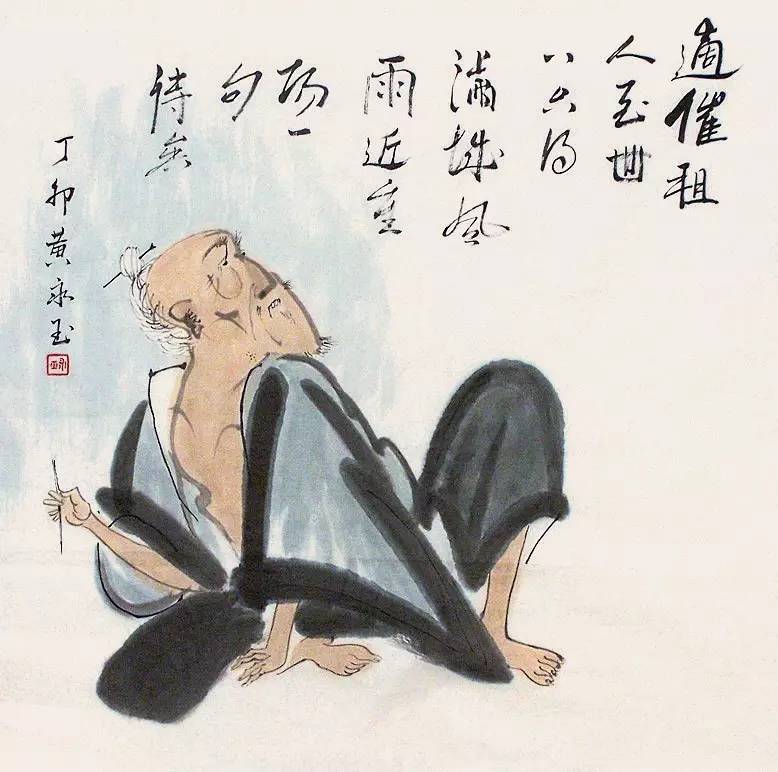 適催租
人至世
人只得
滿城風
雨近重
陽一
句
詩矣
丁卯黃永玉